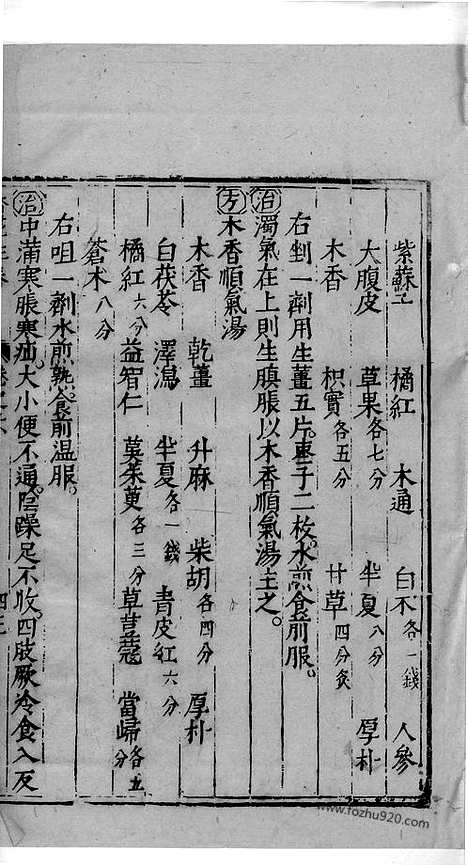 紫蘇子 橘紅 木通 白朮各一錢 人參
大腹皮 草果各七分 半夏八分 厚朴
木香 枳實各五分 甘草四分炙
右剉一劑用生薑五片。棗子二枚。水煎食前服。
治濁氣在上則生䐜脹以木香順氣湯主之。
方木香順氣湯
木香 乾薑 升麻 柴胡各四分 厚朴
白茯苓 澤瀉 半夏各一錢 青皮紅六分
橘紅六分 益智仁 茱茱萸各三分 草荳蔻 當歸各五分
蒼术八分
右咀一劑水煎熟。食前温服。
治中滿寒脹寒疝。大小便不通。陰躁足不收。四肢厥冷食入反
四三
www.fozhu920.com